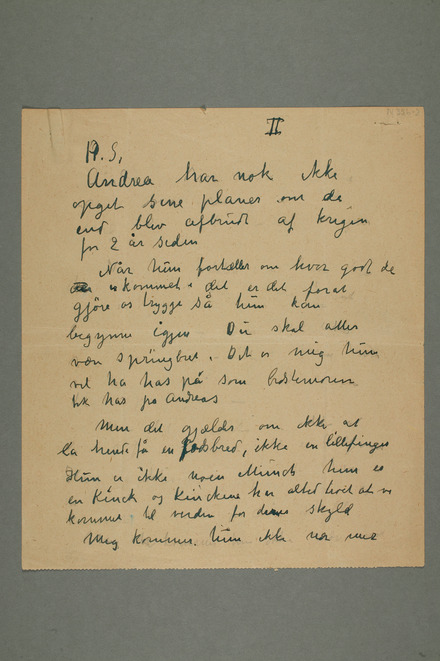 II
P.S,
Andrea har nok ikke
opget sine planer om de
end blev afbrudt af krigen
for 2 år siden
Når hun fortæller om hvor godt de
er ukommet – det er det forat
gjöre os trygge så hun kan
begynne igjen Du skal altid
være Det er mig hun
vil ha has på som bestemoren
fik has på Andreas
Men det gjælds om ikke at
la hende få en fodsbred, ikke en lillefinger
Hun er ikke noen Munch hun er
en Kinck og Kinckene har altid troet at vi
kommer til verden for deres skyld
Mig kommer hun ikke nær mer